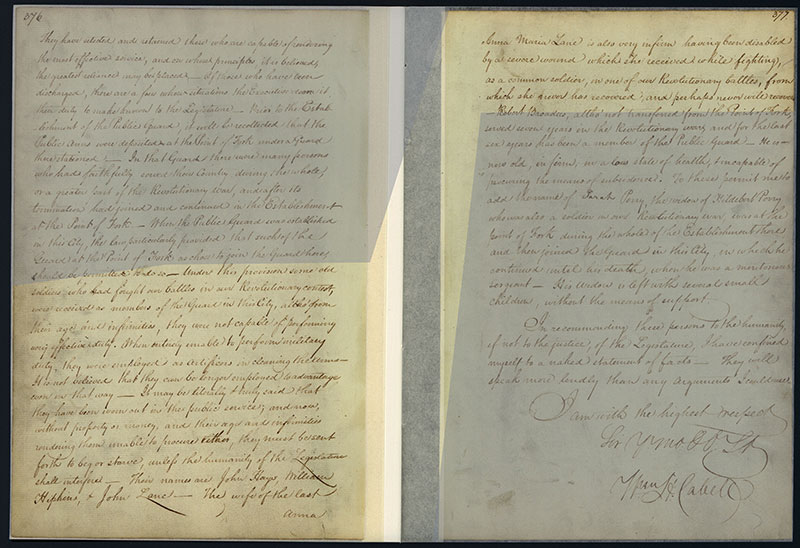 376
They have selected and retained those who are capable of rendering
the most effective service, and on whose principles it is believed,
the greatest reliance may be placed. — Of those who have been
discharged, there are a few whose situations the Executive deem it
their duty to make known to the Legislature — Prior to the Estab
lishment of the Public Guard, it will be recollected that the
Public Arms were deposited at the Point of Fork under a Guard
there stationed — In that Guard there were many persons
who had faithfully served their Country during the whole,
or a greater part of the Revolutionary War, and after its
termination had joined and continued in the Establishment
at the Point of Fork — When the Public Guard was established
in this City, the law particularly provided that such of the
Guard at the Point of Fork as chose to join the Guard here,
should be permitted to do so — Under this provision some old
soldiers who had fought our battles in our Revolutionary contest,
were received as members of the Guard in this City, altho' from
their age and infirmities, they were not capable of performing
very effective duty. When entirely unable to perform military
duty, they were employed as artificers in cleaning the Arms —
It is not believed that they can be longer employed to advantage
even in that way — It may be literally & truly said that
they have been worn out in the public service; and now,
without property or money, and their age and infirmities
rendering them unable to procure either, they must be sent
forth to beg or starve, unless the humanity of the Legislature
shall interpose — Their names are John Hays, William
Hephens, & John Lane — The wife of the last
Anna
377
Anna Maria Lane is also very infirm, having been disabled
by a severe wound which she received while fighting,
as a common soldier, in one of our Revolutionary battles, from
which she never has recovered, and perhaps never will recover.
Robert Broaders, altho' not transferred from the Point of Fork,
served seven years in the Revolutionary war, and for the last
six years has been a member of the Public Guard — He is
now old, infirm, in a low state of health, & incapable of
procuring the means of subsistence. To these permit me to
add the name of Sarah Perry, the widow of Hildebert Perry
who was also a soldier in our Revolutionary war, was at the
Point of Fork during the whole of the Establishment there
and then joined the Guard in this City, in which he
continued until his death, when he was a meritorious
sergeant — His widow is left with several small
children, without the means of support —
In recommending these persons to the humanity,
if not to the justice, of the Legislature, I have confined
myself to a naked statement of facts — They will
speak more loudly than any arguments I could use.
I am with the highest respect
Sir Yr mo Ob St
Wm H. Cabell